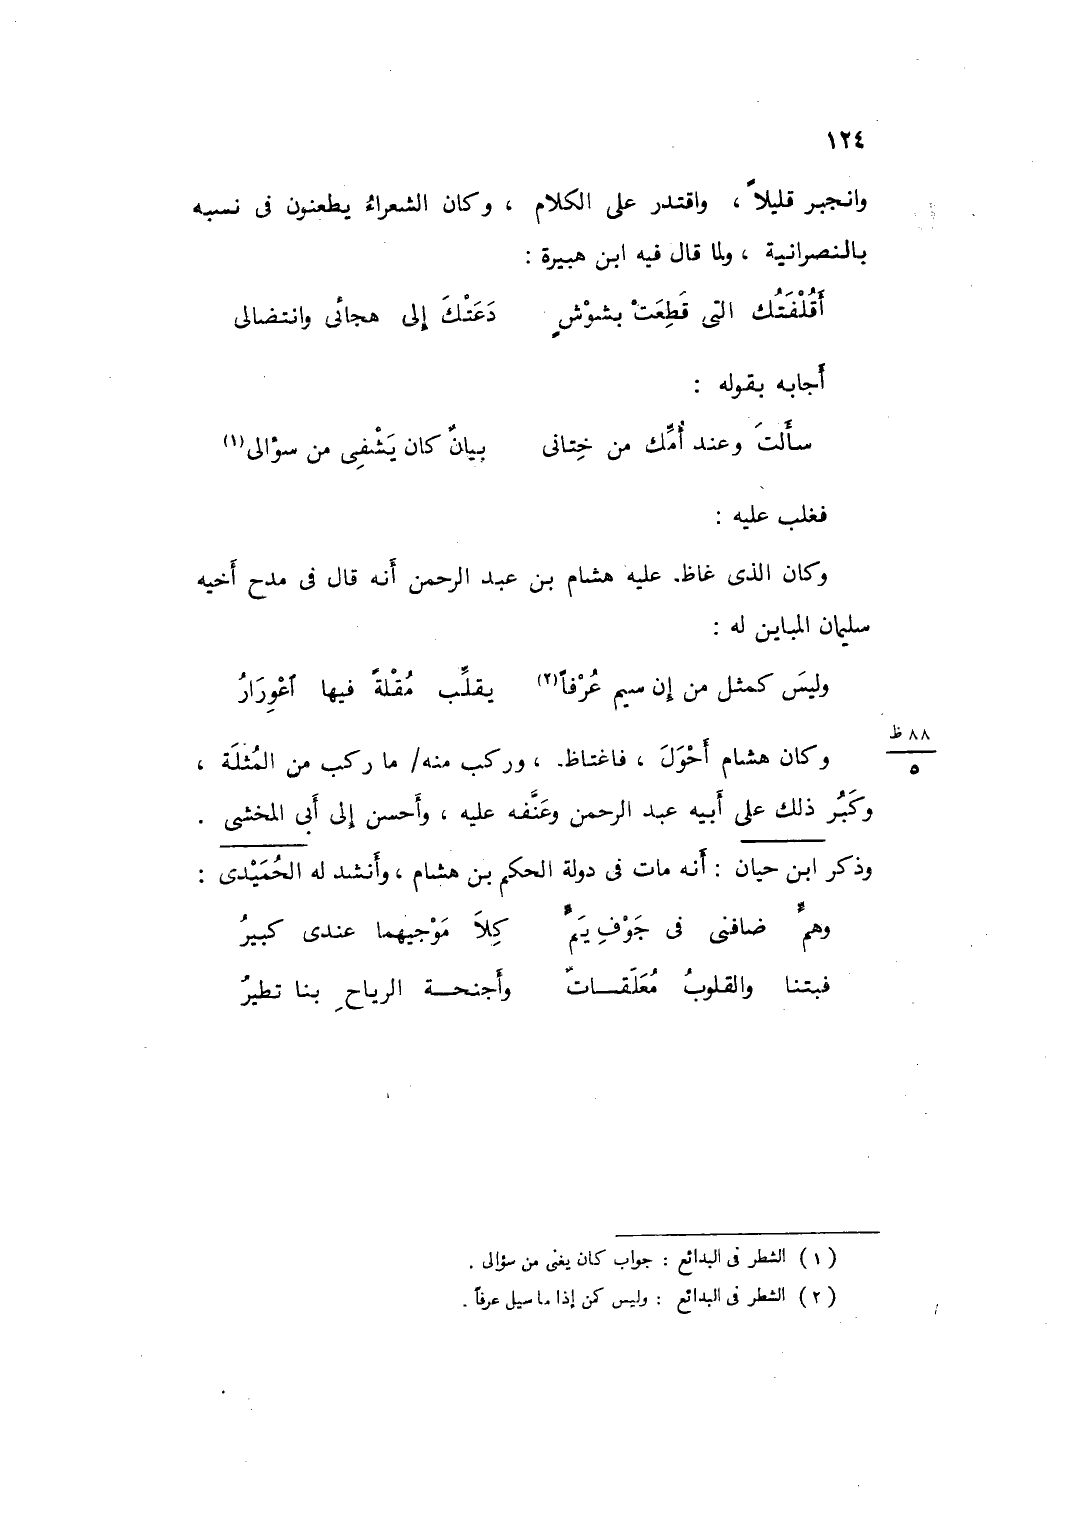 ١٢٤
وانجبر قليلاً ، واقتدر على الكلام ، وكان الشعراءُ يطعنون فى نسبه
بالنصرانية ، ولما قال فيه ابن هبيرة :
أَقُلْفَتُك التى قَطِعَتْ بشوْشٍ دَعَتْكَ إلى هجائى وانتضالى
أَجابه بقوله :
سأَلتَ وعند أُمِّك من خِتانى بيانٌ كان يَشْفِى من سؤالى(١)
فغلب عليه :
وكان الذى غاظ. عليه هشام بن عبد الرحمن أَنه قال فى مدح أَخيه
سليمان المباين له :
وليسَ كمثل من إن سيم عُرْفاً(٢) يقلِّب مُقْلةً فيها اَعْوِرَارُ
وكان هشام أَحْوَلَ ، فاغتاظ. ، وركب منه/ ما ركب من المُثلَة ،
٨٨ ظ
٥
وكَبُر ذلك على أَبيه عبد الرحمن وعَنَّفه عليه ، وأَحسن إلى أَبى المخشى .
وذكر ابن حيان : أَنه مات فى دولة الحكم بن هشام ، وأَنشد له الحُمَيْدى :
وهمٌّ ضافنى فى جَوْفِ يَمٍّ كِلاَ مَوْجيهما عندى كبيرُ
فبتنا والقلوبُ مُعَلَقـــاتٌ وأَجنحـــة الرياحِ بنا تطيرُ
(١) الشطر فى البدائع : جواب كان يغنى من سؤالى .
(٢) الشطر فى البدائع : وليس كن إذا ما سيل عرفاً .